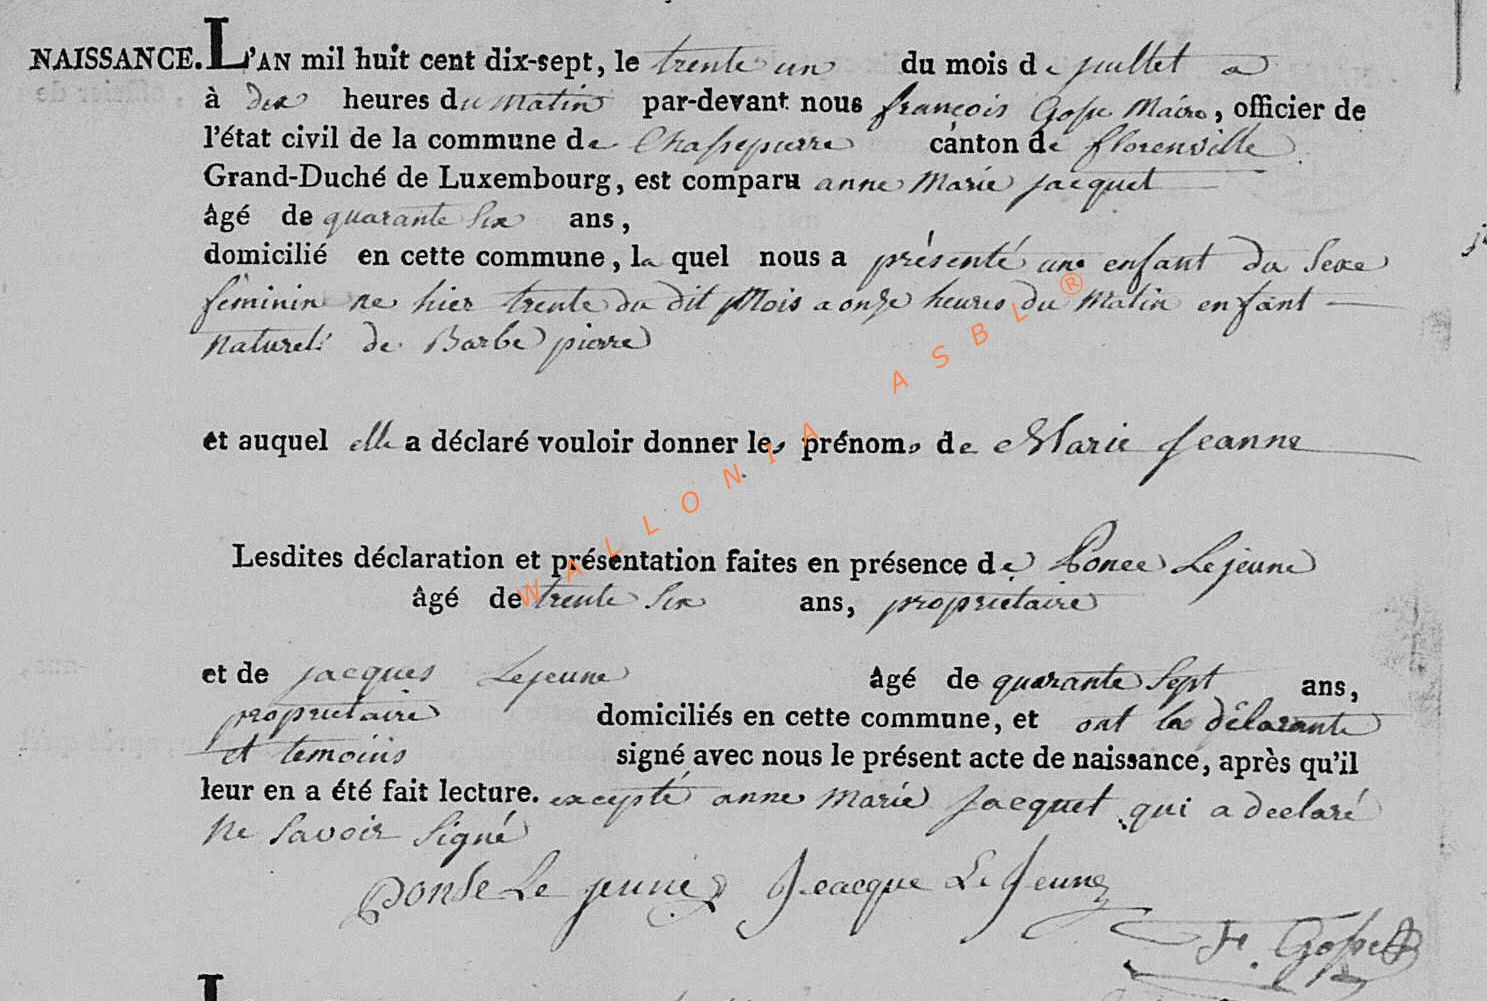 NAISSANCE. L'AN mil huit cent dix-sept, le trente un du mois de juillet a
à dix heures du matin par-devant nous françois Gosse Maire, officier de
l'état civil de la commune de Chassepierre canton de florenville
Grand-Duché de Luxembourg, est comparu anne Marie jacquet
âgé de quarante six ans,
domicilié en cette commune, la quel nous a présenté une enfant du Sexe
féminin ne hier trente du dit Mois a onze heures du Matin enfant
naturel de Barbe pierre
et auquel elle a déclaré vouloir donner les prénoms de Marie Jeanne
Lesdites déclaration et présentation faites en présence de Ponce Lejeune
âgé de trente Six ans, proprietaire
et de jacques Lejeune âgé de quarante Sept ans,
proprietaire domiciliés en cette commune, et ont la délarante
et temoins signé avec nous le présent acte de naissance, après qu'il
leur en a été fait lecture. excepté anne Marie Jacquet qui a declaré
ne Savoir Signé
Ponse Le jeune Jeacque Le Jeune
F. Gosse
WALLONIA ASBL ®